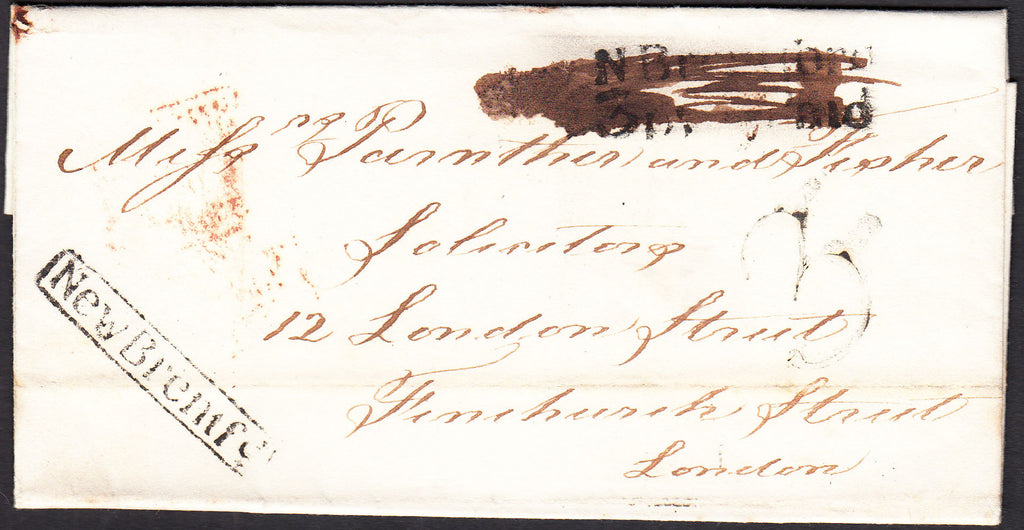 Messrs Parnther and Fisher
Solicitors
12 London Street
Finchurch Street
London
New Brentfd
3